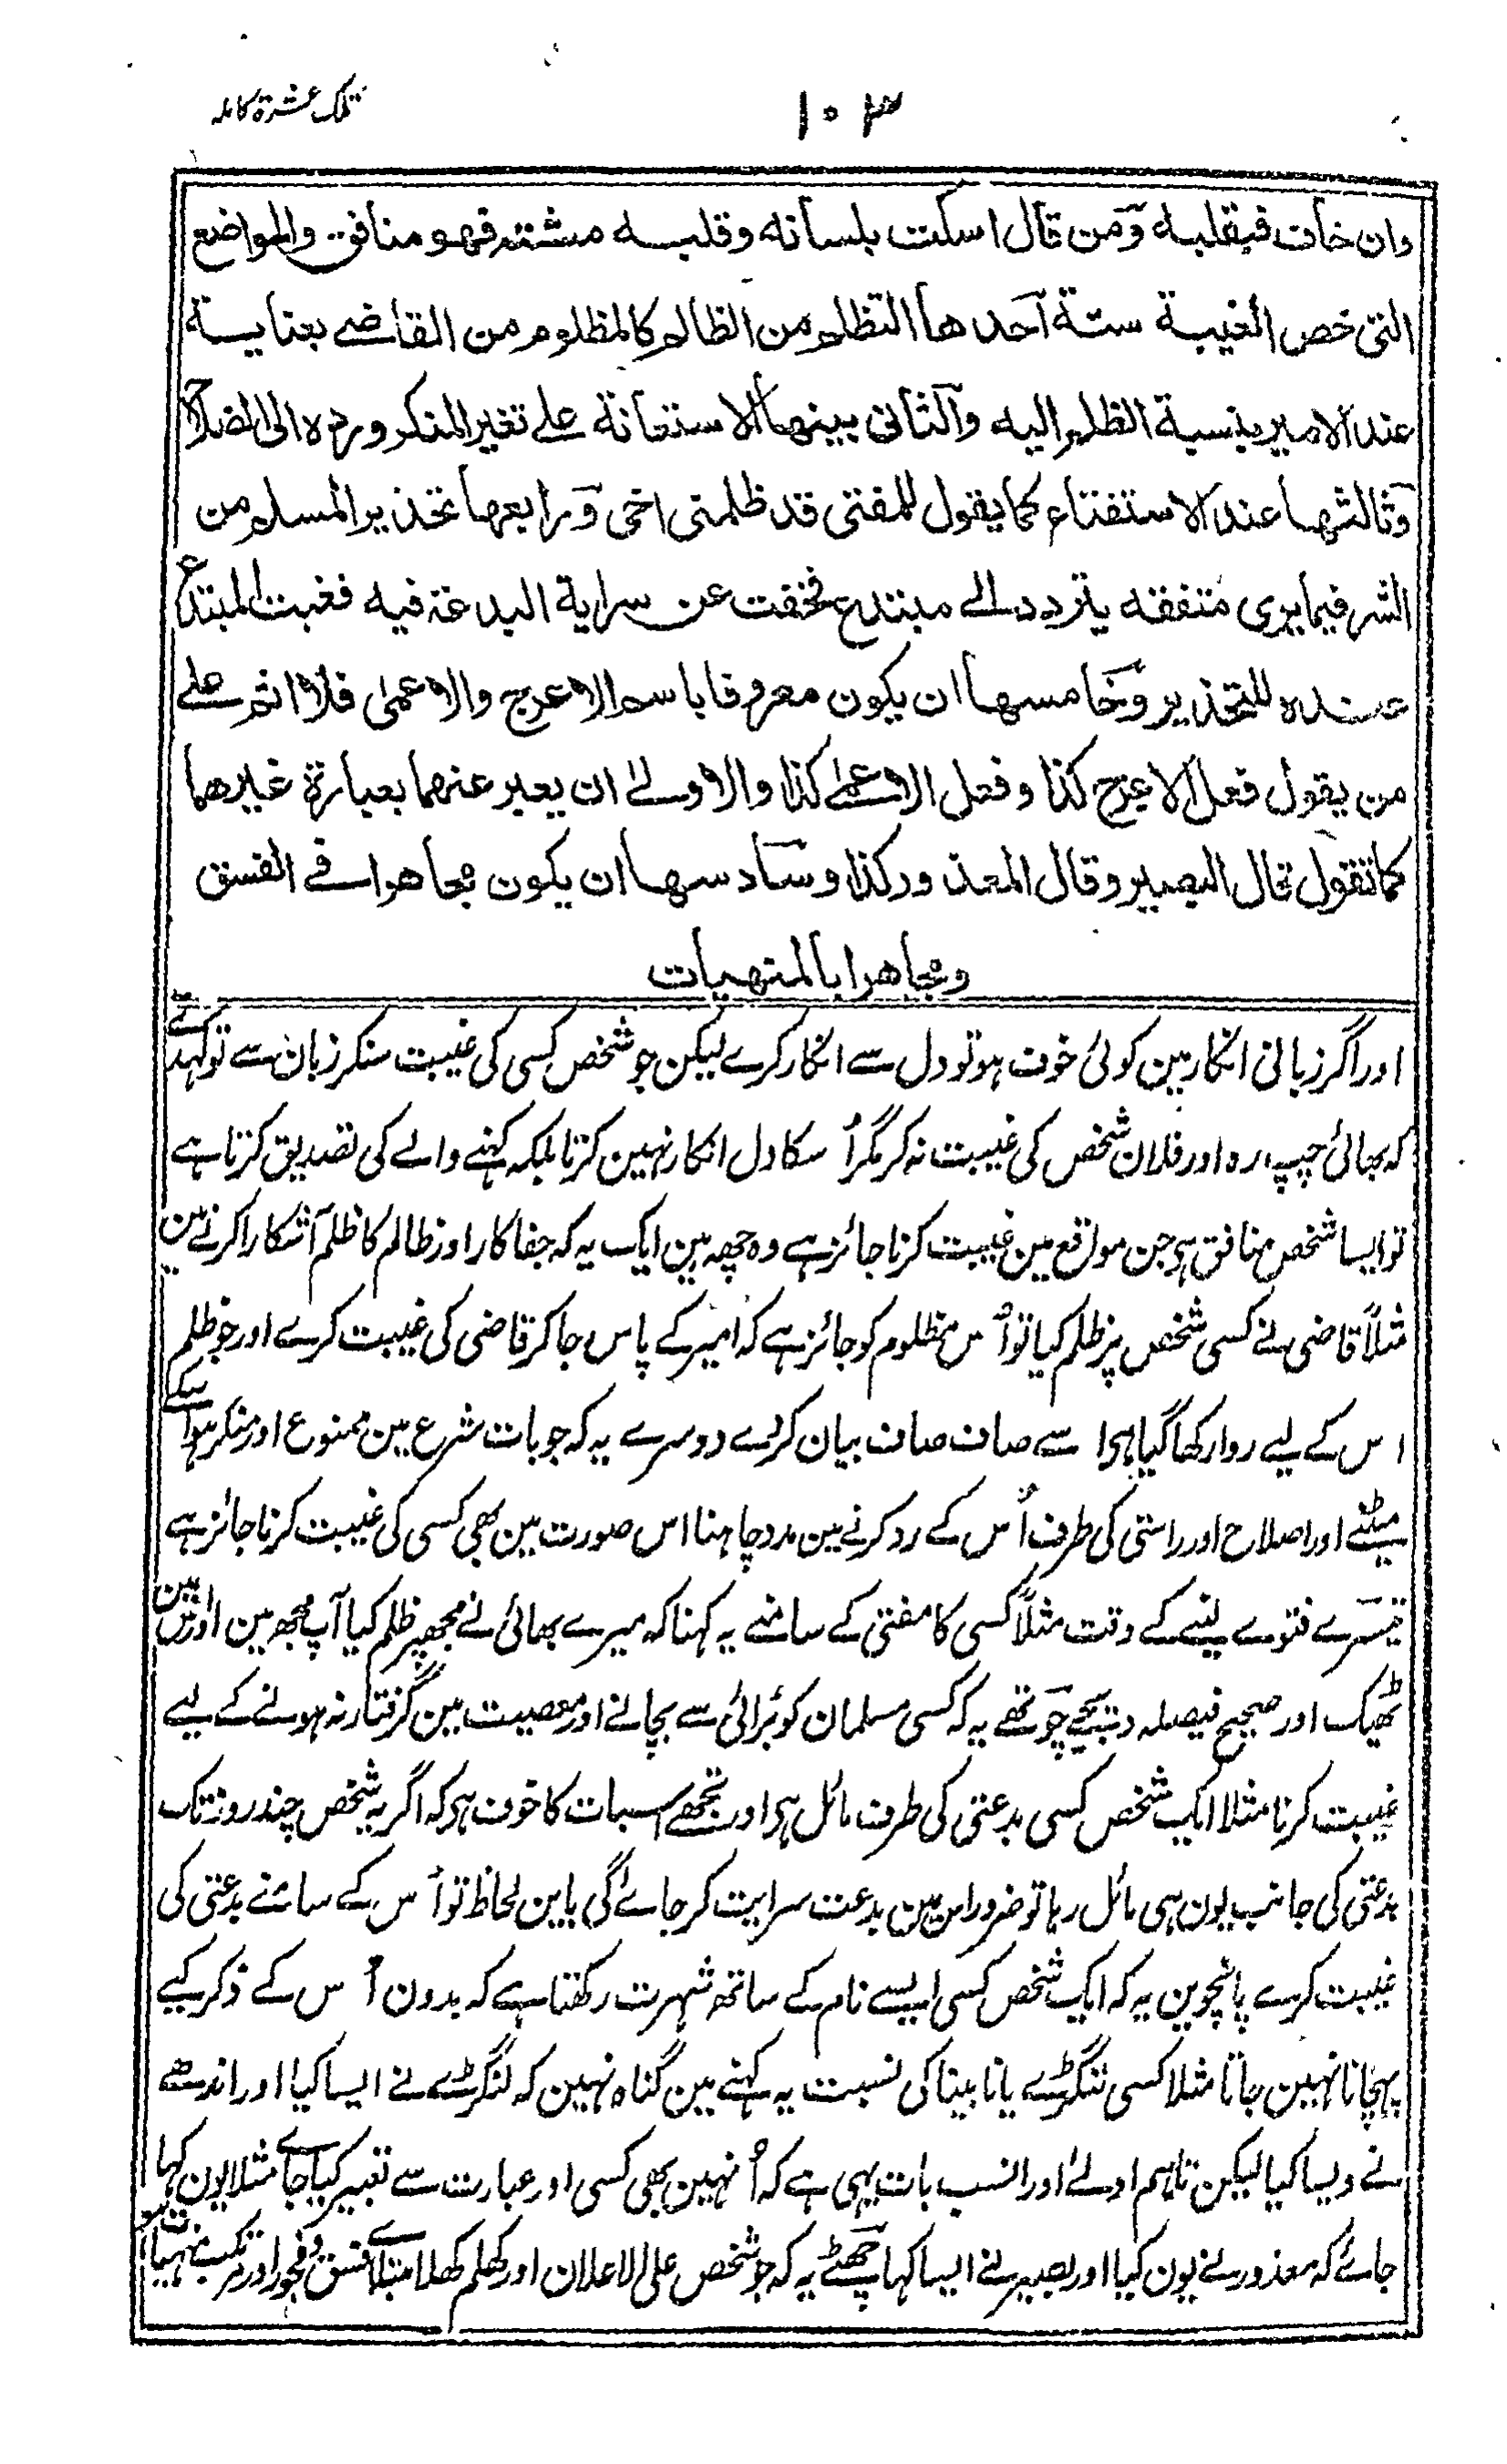 ۱۰۳
تلک عشرة کامله
وان خاف فبقلبه ومن قال اسکت بلسانه وقلبه مشته فهو منافق والمواضع
التی خص الغیبة ستة احدها التظلم من الظالم کالمظلوم من القاضے بعنایة
عند الامیر بنسبة الظلم الیه والثانی بینها الاستعانة علے تغیر المنکر ورده الی الصلاح
وثالثها عند الاستفتاء کما یقول للمفتی قد ظلمنی اخی ورابعها تحذیر المسلم من
الشر فیما یری متفقه یتردد الے مبتدع فخفت عن سرایة البدعة فیه فغبت المبتدع
عنده للتحذیر وخامسها ان یکون معروفا باسم الاعرج والاعمی فلا اثم علے
من یقول فعل الاعرج کذا وفعل الاعمے کذا والاولے ان یعبر عنهما بعبارة غیرهما
کما تقول قال البصیر وقال المعذور کذا وسادسها ان یکون مجاهرا فے الفسق
ومجاهرا بالمنهیات
اور اگر زبانی انکار مین کوئی خوف ہو تو دل سے انکار کرے لیکن جو شخص کسی کی غیبت سنکر زبان سے تو کہدے
کہ بھائی چپ رہ اور فلان شخص کی غیبت نہ کر مگر اُسکا دل انکار نہین کرتا بلکہ کہنے والے کی تصدیق کرتا ہے
تو ایسا شخص منافق ہی جن مواقع مین غیبت کرنا جائز ہے وہ چھہ ہین ایک یہ کہ جفاکار اور ظالم کا ظلم آشکارا کرنے مین
مثلاً قاضی نے کسی شخص پر ظلم کیا تو اُس مظلوم کو جائز ہے کہ امیر کے پاس جا کر قاضی کی غیبت کرے اور جو ظلم
اس کے لیے روا رکھا گیا ہی اسے صاف صاف بیان کرے دوسرے یہ کہ جو بات شرع مین ممنوع اور منکر ہو اسکے
میٹنے اور اصلاح اور راستی کی طرف اُس کے رد کرنے مین مدد چاہنا اس صورت مین بھی کسی کی غیبت کرنا جائز ہے
تیسرے فتوے لینے کے وقت مثلاً کسی کا مفتی کے سامنے یہ کہنا کہ میرے بھائی نے مجھپر ظلم کیا آپ مجھ مین اور اس مین
ٹھیک اور صحیح فیصلہ دیجیے چوتھے یہ کہ کسی مسلمان کو برائی سے بچانے اور معصیت مین گرفتار نہ ہونے کے لیے
غیبت کرنا مثلا ایک شخص کسی بدعتی کی طرف مائل ہی اور تجھے اسبات کا خوف ہی کہ اگر یہ شخص چند روز تک
بدعتی کی جانب یون ہی مائل رہا تو ضرور اس مین بدعت سرایت کر جائے گی باین لحاظ تو اُس کے سامنے بدعتی کی
غیبت کرے پانچوین یہ کہ ایک شخص کسی ایسے نام کے ساتھ شہرت رکھتا ہے کہ بدون اُس کے ذکر کیے
پہچانا نہین جاتا مثلا کسی لنگڑے یا نابینا کی نسبت یہ کہنے مین گناہ نہین کہ لنگڑے نے ایسا کیا اور اندھے
نے ویسا کیا لیکن تاہم اولے اور انسب بات یہی ہے کہ اُنہین بھی کسی اور عبارت سے تعبیر کیا جائے مثلا یون کہا
جائے کہ معذور نے یون کیا اور بصیر نے ایسا کہا چھٹے یہ کہ جو شخص علی الاعلان اور کھلم کھلا مبتلائے فسق و فجور اور مرتکب منہیات ہو